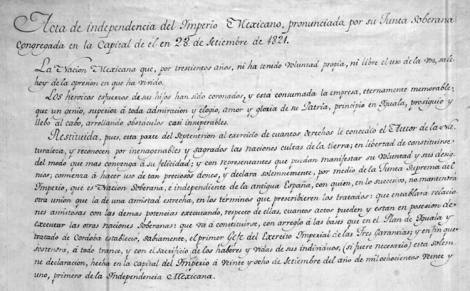 Acta de independencia del Imperio Mexicano, pronunciada por su Junta Soberana
Congregada en la Capital de él en 28 de Setiembre de 1821.
La Nacion Mexicana que, por trescientos años, ni ha tenido voluntad propia, ni libre el uso de la voz, sale
hoy de la opresion en que ha vivido.
Los heroicos esfuerzos de sus hijos han sido coronados, y está consumada la empresa, eternamente memorable,
que un genio, superior á toda admiracion y elogio, amor y gloria de su Patria, principió en Iguala, prosiguió y
llevó al cabo, arrollando obstaculos casi insuperables.
Restituida, pues, esta parte del Septentrion al exercicio de cuantos derechos le concedió el Autor de la Na-
turaleza, y reconocen por inagenables y sagrados las naciones cultas de la tierra; en libertad de constituirse
del modo que mas convenga á su felicidad; y con representantes que puedan manifestar su voluntad y sus desig-
nios; comienza á hacer uso de tan preciosos dones, y declara solemnemente, por medio de la Junta Suprema del
Imperio, que es Nacion Soberana, é independiente de la antigua España, con quien, en lo succesivo, no mantendrá
otra union que la de una amistad estrecha, en los términos que prescribieren los tratados: que entablará relacio-
nes amistosas con las demas potencias executando, respecto de ellas, cuantos actos pueden y estan en posesion de
executar las otras naciones soberanas: que vá á constituirse, con arreglo á las bases que en el Plan de Iguala y
tratado de Córdoba estableció, sabiamente, el primer Gefe del Exercito Imperial de las Tres Garantias; y en fin que
sostendrá, á todo trance, y con el sacrificio de los haberes y vidas de sus individuos, (si fuere necesario) esta solem-
ne declaracion, hecha en la capital del Imperio á veinte y ocho de Setiembre del año de mil ochocientos veinte y
uno, primero de la Independencia Mexicana.